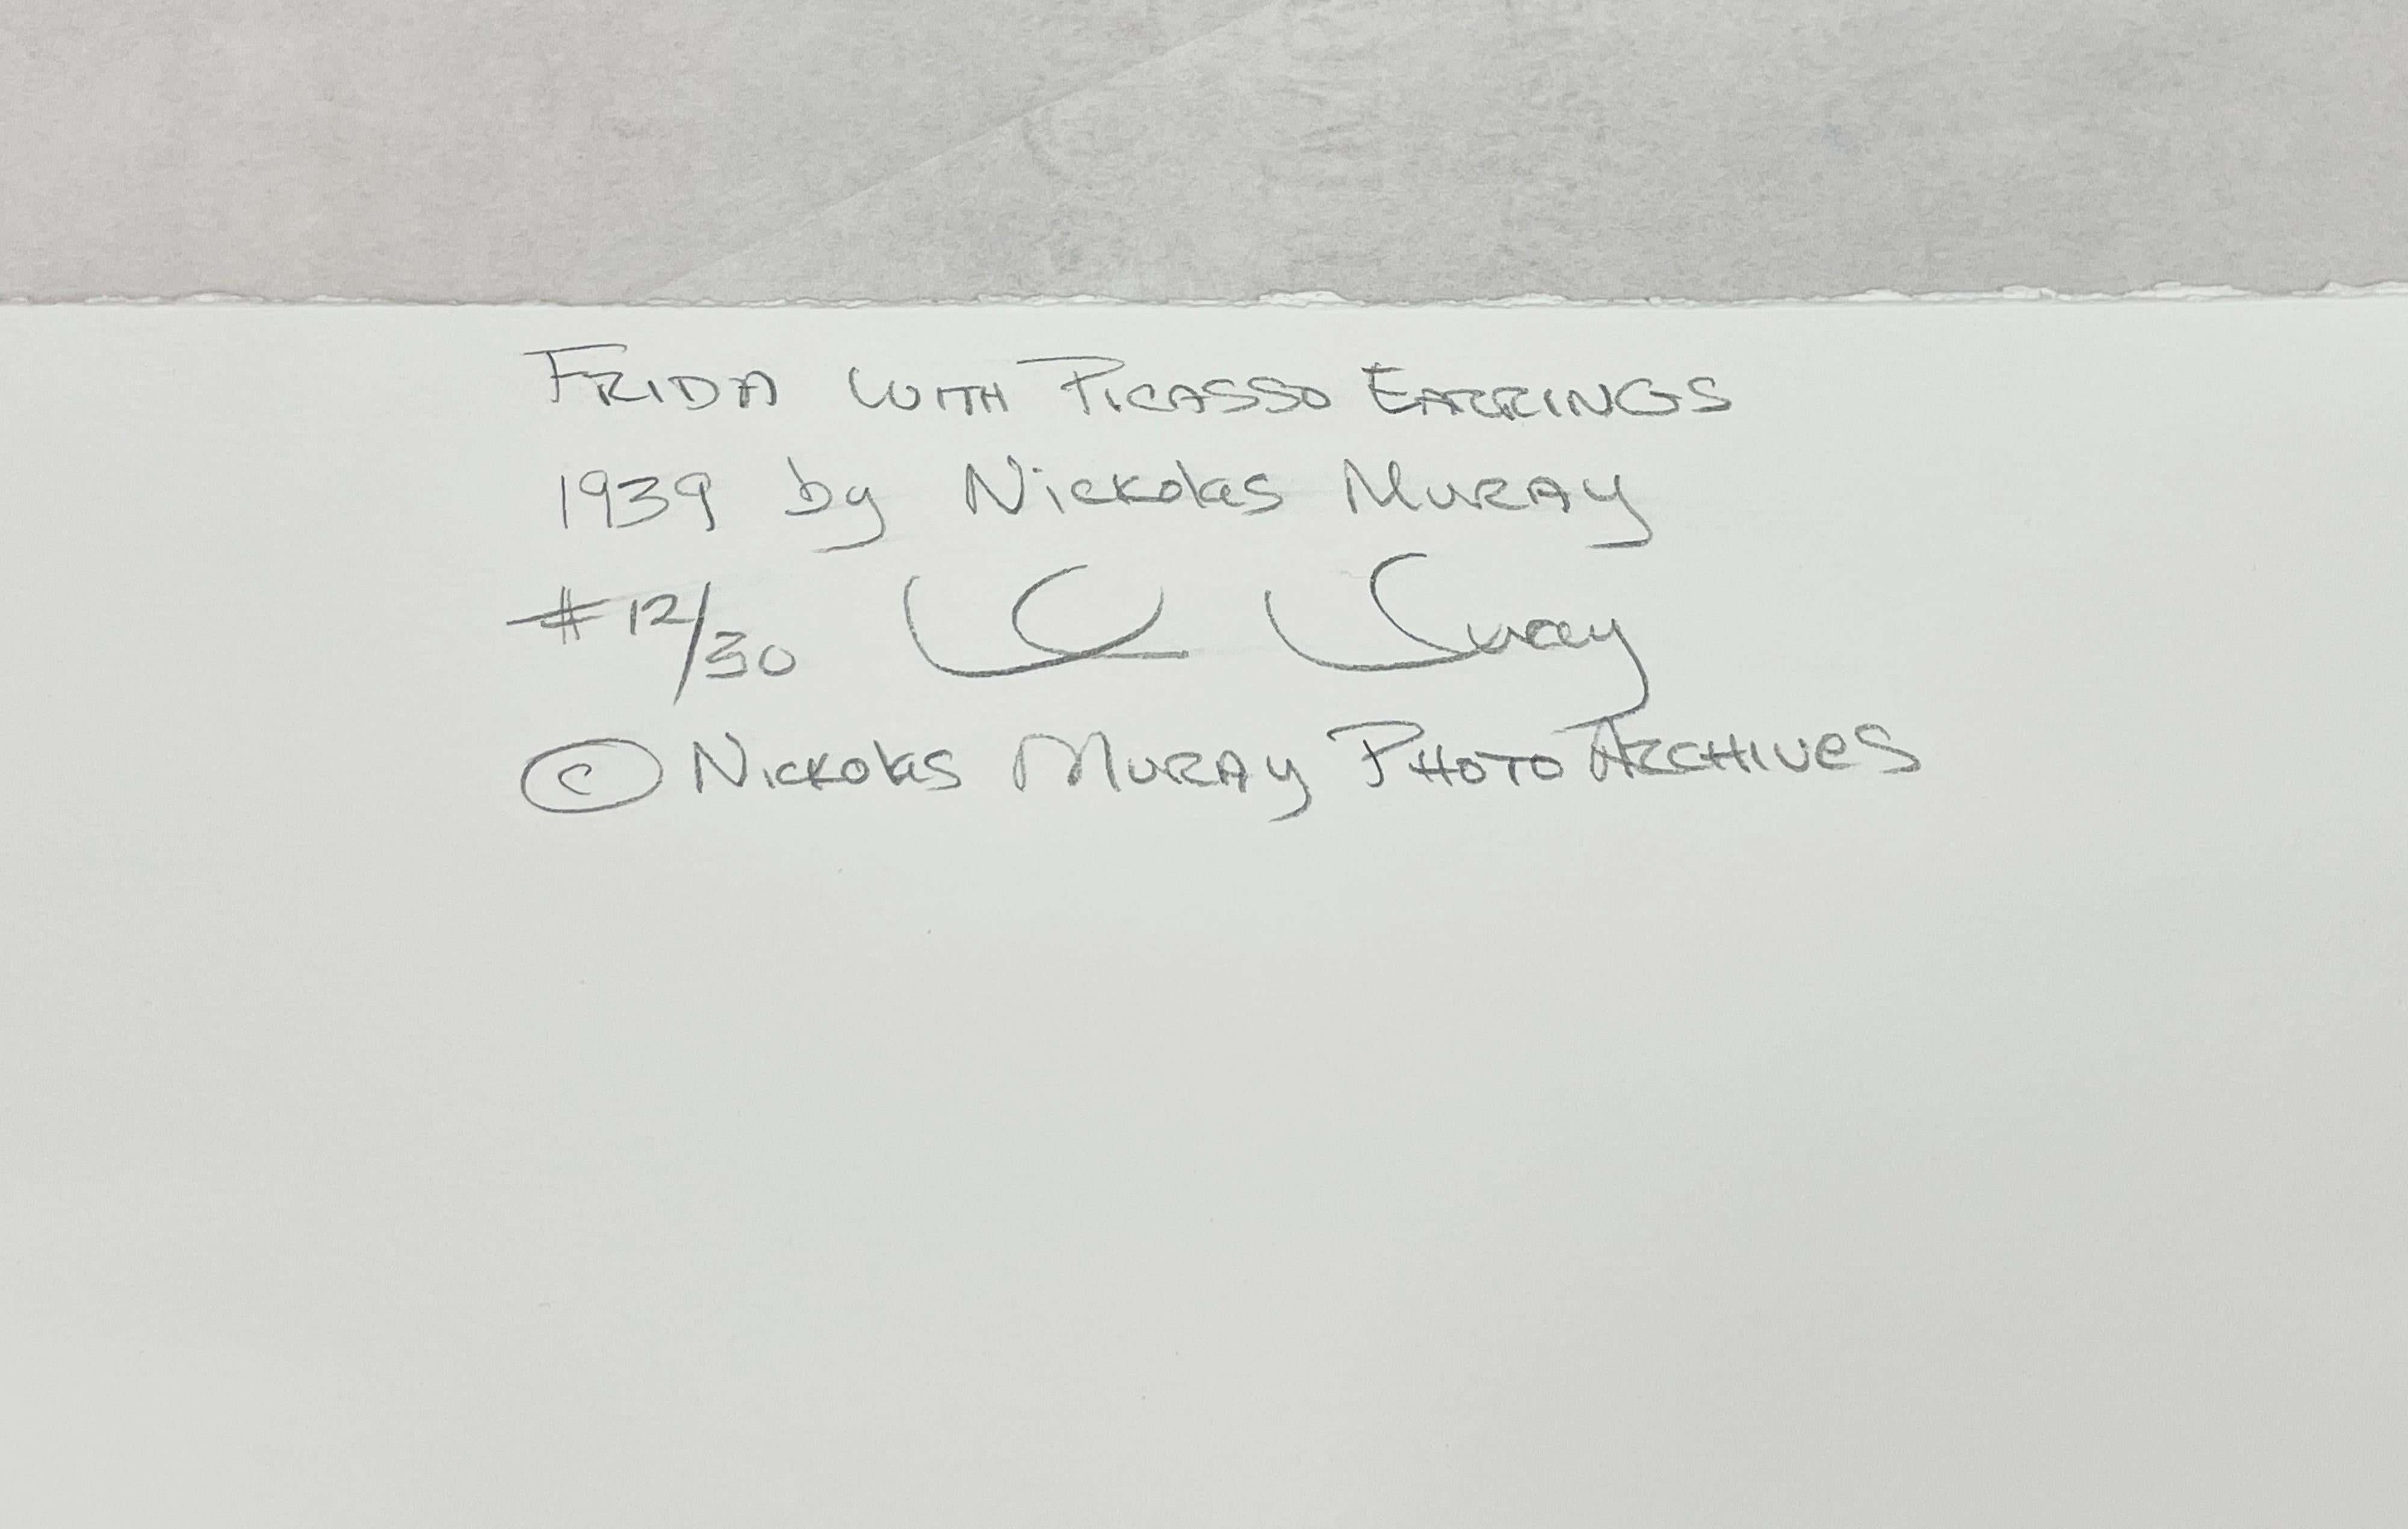 FRIDA WITH PICASSO EARRINGS
1939 by Nickolas MURAY
#12/30 Muray
© Nickolas MURAY PHOTO ARCHIVES